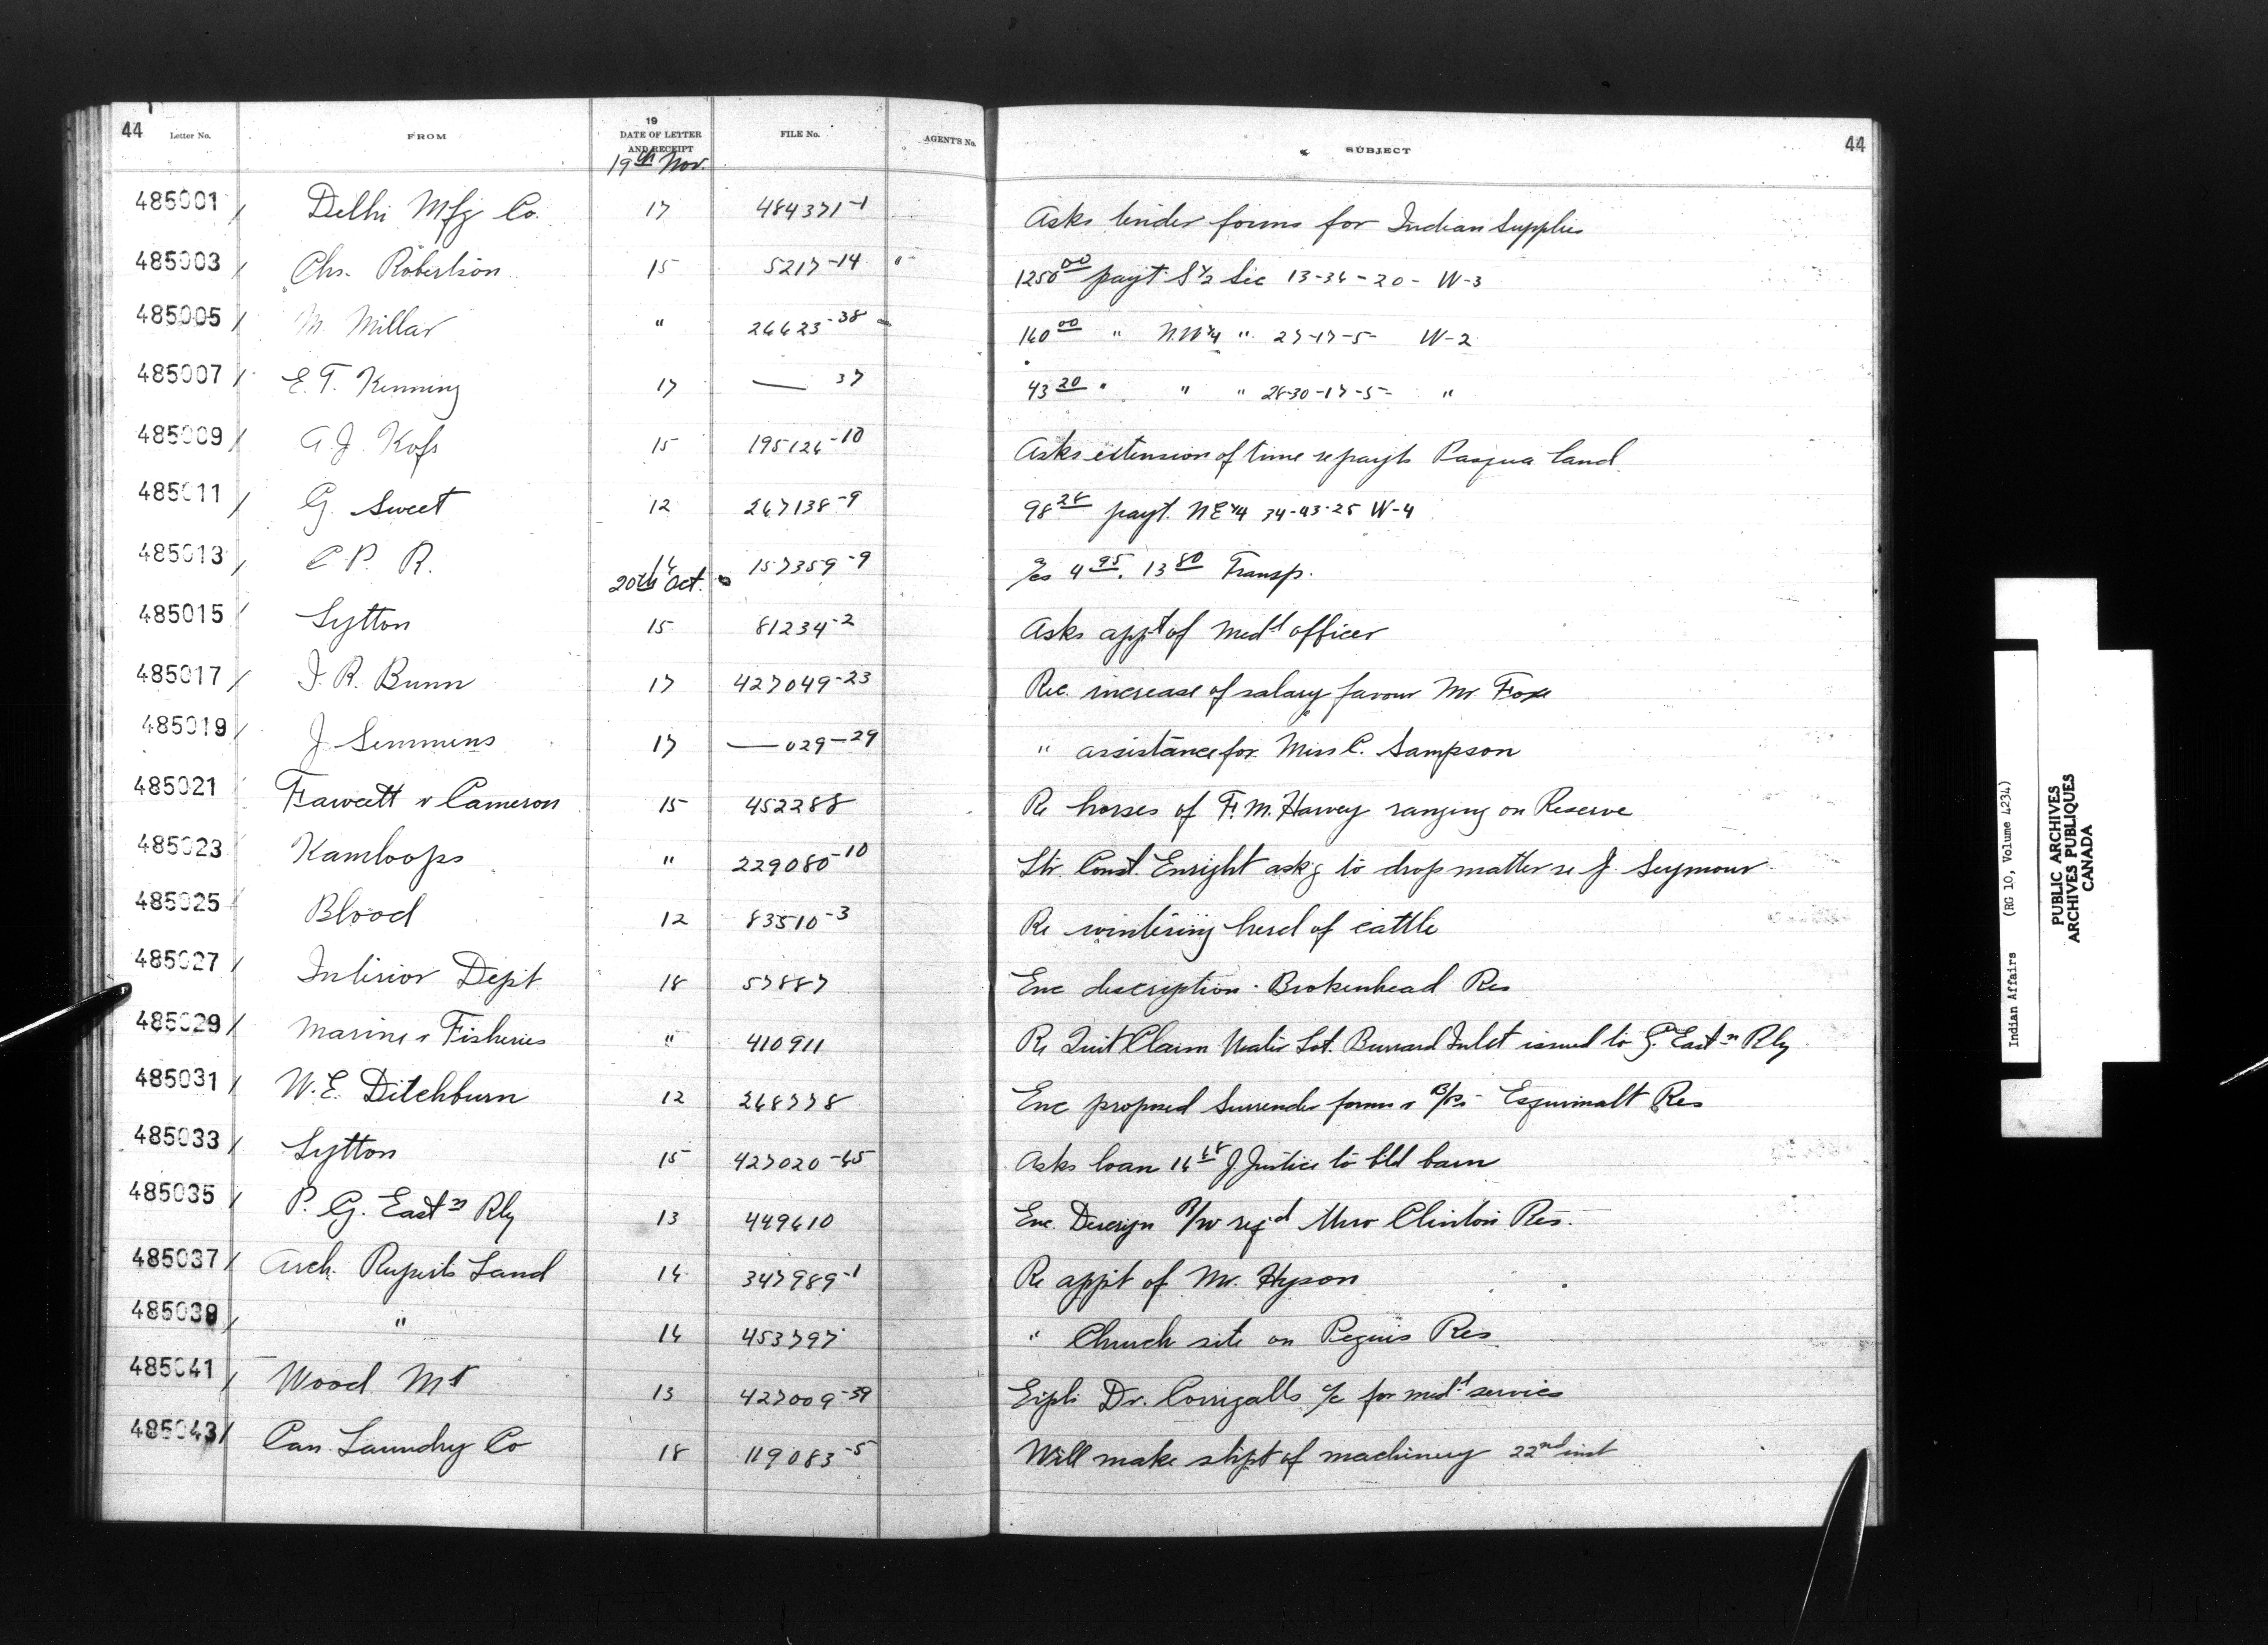 44 Letter No. FROM 19 DATE OF LETTER AND RECEIPT FILE No. AGENT'S No. SUBJECT 44
19th Nov.
485001 / Delhi Mfg Co. 17 484371-1 Asks tender forms for Indian Supplies
485003 / Chs. Robertson 15 5217-14 " 1250.00 payt. S½ Sec 13-34-20- W-3
485005 / M. Millar " 26623-38 160.00 " N.W¼ " 27-17-5- W-2
485007 / E. T. Kenning 17 — 37 43.20 " " " 28-30-17-5- "
485009 / A. J. 15 195126-10 Asks extension of time re payts Pasqua land
485011 / G. Sweet 12 267138-9 98.28 payt. NE¼ 34-43-25 W-4
485013 / C. P. R. 16 157359-9 a/cs 4.95. 13.80 Transp.
20th Oct.
485015 / Lytton 15 81234-2 Asks appt of Medl officer
485017 / J. R. Bunn 17 427049-23 Rec. increase of salary favour Mr. Fox
485019 / J. Semmens 17 — 029-29 " assistance for Miss C. Sampson
485021 / Fawcett & Cameron 15 452288 Re horses of F. M. Harvey ranging on Reserve
485023 / Kamloops " 229080-10 Ltr. Const. Enright askg to drop matter re J. Seymour
485025 / Blood 12 83510-3 Re wintering herd of cattle
485027 / Interior Dept 18 57887 Enc description - Brokenhead Res
485029 / Marine & Fisheries " 410911 Re Quit Claim Water Lot. Burrard Inlet issued to G. Eastn Rly
485031 / W. E. Ditchburn 12 268778 Enc proposed Surrender forms & B/Ps - Esquimalt Res
485033 / Lytton 15 427020-65 Asks loan J. Justice to bld barn
485035 / P. G. Eastn Rly 13 449610 Enc. Descripn R/W reqd thro Clinton Res.
485037 / Arch. Ruperts Land 14 347989-1 Re appt of Mr. Hyson
485039 / " 14 453797 " Church site on Peguis Res
485041 / Wood Mt 13 427009-39 Expls Dr. Corrigalls a/c for medl services
485043 / Can. Laundry Co 18 119083-5 Will make shpt of machinery 22nd inst
Indian Affairs (RG 10, Volume 4234)
PUBLIC ARCHIVES
ARCHIVES PUBLIQUES
CANADA